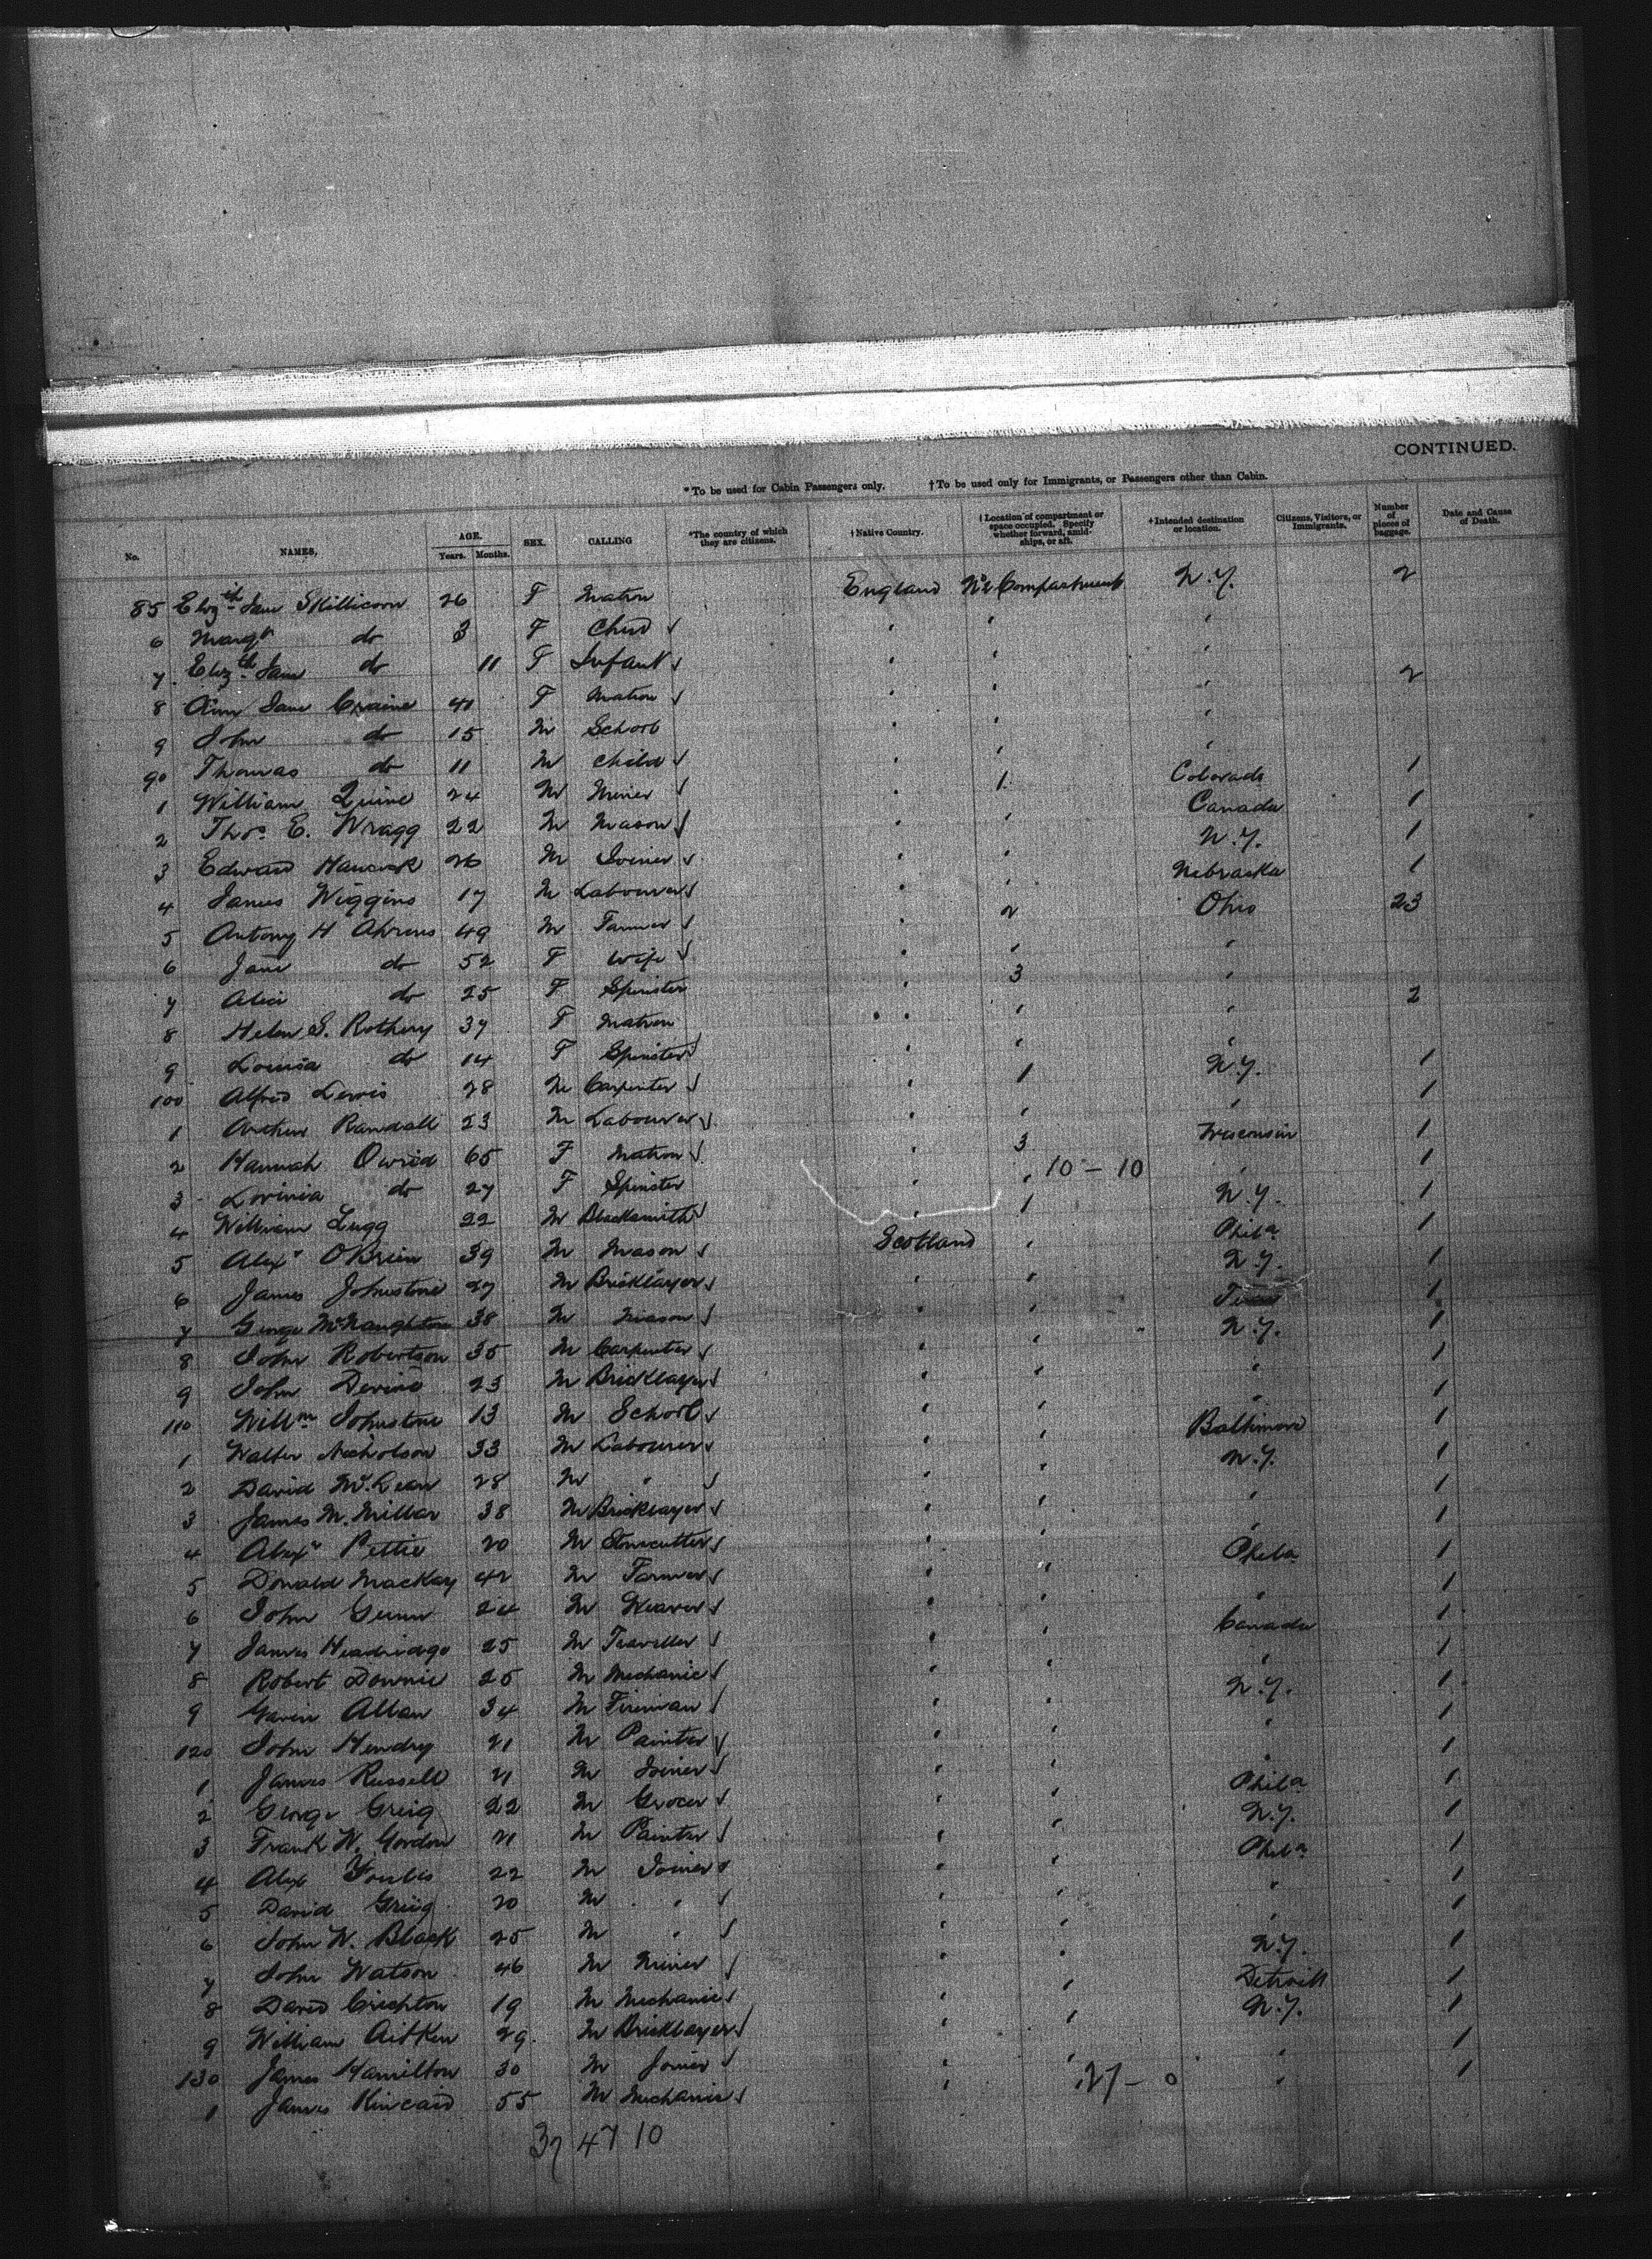 CONTINUED.
*To be used for Cabin Passengers only. †To be used only for Immigrants, or Passengers other than Cabin.
No. NAMES, AGE. Years. Months. SEX. CALLING *The country of which they are citizens. †Native Country. †Location of compartment or space occupied. Specify whether forward, amidships, or aft. †Intended destination or location. Citizens, Visitors, or Immigrants. Number of pieces of baggage. Date and Cause of Death.
85 Elizth Jane Skillicorn 26 F Matron England No 2 Compartment N.Y. 2
6 Margt do 3 F Child " " "
7 Elizth Jane do 11 F Infant " " "
8 Ann Jane Craine 41 F Matron " " " 2
9 John do 15 M School " " "
90 Thomas do 11 M Child " " "
1 William Quine 24 M Miner " 1 Colorado 1
2 Thos. E. Wragg 22 M Mason " " Canada 1
3 Edward Hancock 26 M Joiner " " N.Y. 1
4 James Wiggins 17 M Labourer " " Nebraska 1
5 Antony H Ahrens 49 M Farmer " 2 Ohio 23
6 Jane do 52 F Wife " " "
7 Alice do 25 F Spinster " 3 "
8 Helen S. Rothery 37 F Matron " " " 2
9 Louisa do 14 F Spinster " " "
100 Alfred Lewis 28 M Carpenter " 1 N.Y. 1
1 Arthur Randall 23 M Labourer " " " 1
2 Hannah Owrid 65 F Matron " 3 Wisconsin 1
3 Lovinia do 27 F Spinster " " 10 - 10 " 1
4 William Lugg 22 M Blacksmith " 1 N.Y. 1
5 Alexr OBrien 39 M Mason Scotland " Phila 1
6 James Johnstone 27 M Bricklayer " " N.Y. 1
7 George McNaughton 38 M Mason " " 1
8 John Robertson 35 M Carpenter " " N.Y. 1
9 John Devine 23 M Bricklayer " " " 1
110 Willm Johnstone 13 M School " " " 1
1 Walter Nicholson 33 M Labourer " " Baltimore 1
2 David McLean 28 M " " " N.Y. 1
3 James M. Millar 38 M Bricklayer " " " 1
4 Alexr Pettie 20 M Stonecutter " " " 1
5 Donald Mackay 42 M Farmer " " Phila 1
6 John Gunn 24 M Weaver " " " 1
7 James Headridge 25 M Traveller " " Canada 1
8 Robert Downie 25 M Mechanic " " " 1
9 Gavin Allan 34 M Fireman " " N.Y. 1
120 John Hendry 21 M Painter " " " 1
1 James Russell 21 M Joiner " " " 1
2 George Greig 22 M Grocer " " Phila 1
3 Frank W. Gordon 21 M Painter " " N.Y. 1
4 Alex Forbes 22 M Joiner " " Phila 1
5 David Greig 20 M " " " " 1
6 John W. Black 25 M " " " " 1
7 John Watson 46 M Miner " " N.Y. 1
8 David Crichton 19 M Mechanic " " Detroit 1
9 William Aitken 29 M Bricklayer " " N.Y. 1
130 James Hamilton 30 M Joiner " " " 1
1 James Kincaid 55 M Mechanic " " 27 - 0 " 1
37 47 10